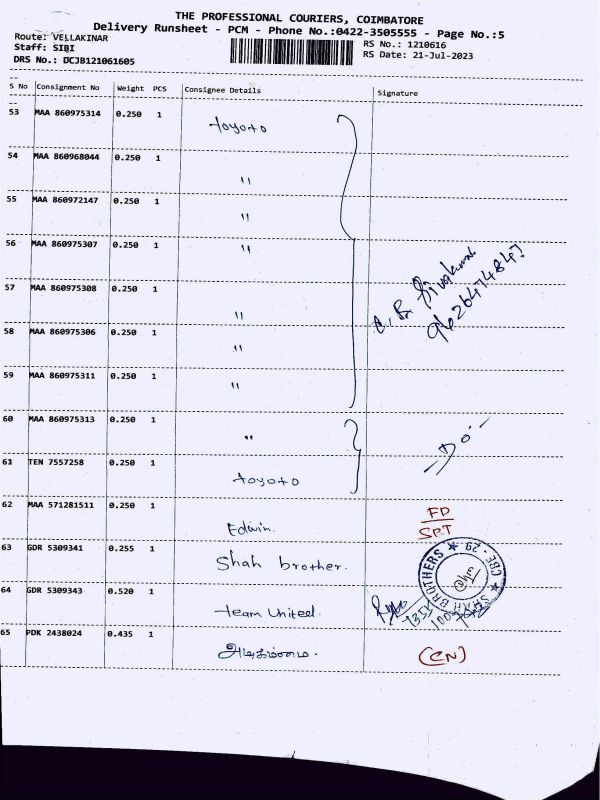 THE PROFESSIONAL COURIERS, COIMBATORE
Delivery Runsheet - PCM - Phone No.:0422-3505555 - Page No.:5
Route: VELLAKINAR
RS No.: 1210616
Staff: SIBI
RS Date: 21-Jul-2023
DRS No.: DCJB121061605
S No Consignment No Weight PCS Consignee Details Signature
53 MAA 860975314 0.250 1 toyoto
54 MAA 860968044 0.250 1 "
55 MAA 860972147 0.250 1 "
56 MAA 860975307 0.250 1 "
57 MAA 860975308 0.250 1 "
58 MAA 860975306 0.250 1 "
59 MAA 860975311 0.250 1 "
60 MAA 860975313 0.250 1 " -Do-
61 TEN 7557258 0.250 1 toyoto
62 MAA 571281511 0.250 1 Edwin. FD
SPT
63 GDR 5309341 0.255 1 Shah brother.
SHAH BROTHERS ★ CBE - 29 ★
64 GDR 5309343 0.520 1 team United.
65 PDK 2438024 0.435 1 (CN)